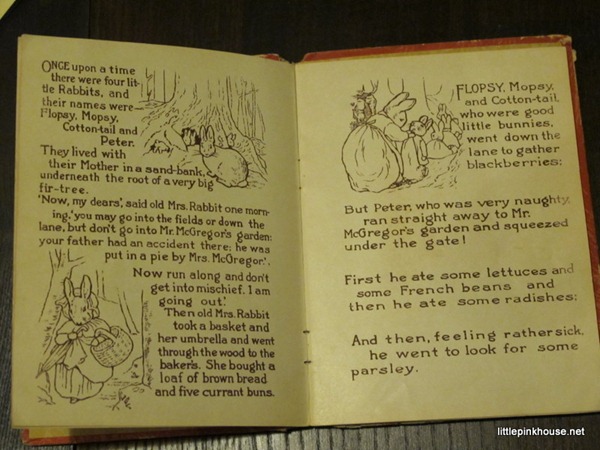 ONCE upon a time
there were four lit-
tle Rabbits, and
their names were—
Flopsy, Mopsy,
Cotton-tail and
Peter.
They lived with
their Mother in a sand-bank,
underneath the root of a very big
fir-tree.
'Now, my dears', said old Mrs. Rabbit one morn-
ing, 'you may go into the fields or down the
lane, but don't go into Mr. McGregor's garden:
your father had an accident there; he was
put in a pie by Mrs. McGregor.'
Now run along and don't
get into mischief. I am
going out.'
Then old Mrs. Rabbit
took a basket and
her umbrella and went
through the wood to the
baker's. She bought a
loaf of brown bread
and five currant buns.
FLOPSY, Mopsy,
and Cotton-tail,
who were good
little bunnies,
went down the
lane to gather
blackberries;
But Peter, who was very naughty,
ran straight away to Mr.
McGregor's garden and squeezed
under the gate!
First he ate some lettuces and
some French beans and
then he ate some radishes;
And then, feeling rather sick,
he went to look for some
parsley.
littlepinkhouse.net